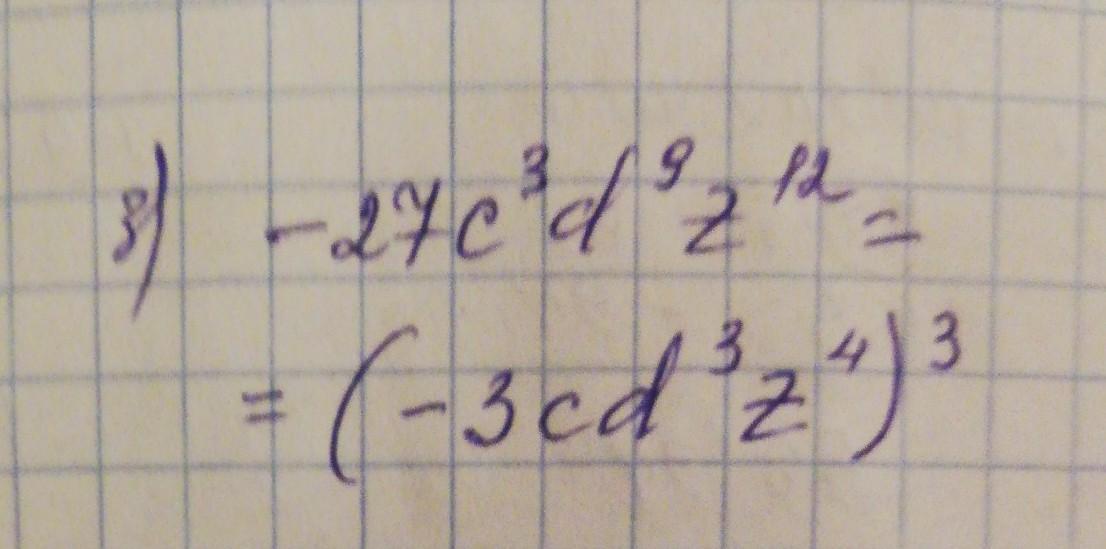 8) -27c³d⁹z¹² =
= (-3cd³z⁴)³